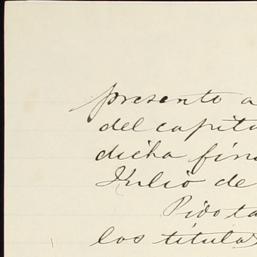 presento a
del capita
dicha fin
Julio de
Pido ta
los titula